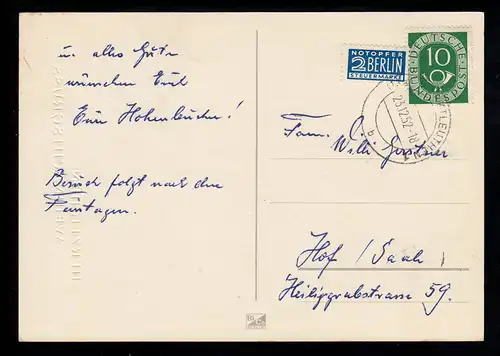 u. alles Gute
wünschen Euch
Eure Hohenbucher!
Besuch folgt nach den
Feiertagen.
NOTOPFER
2 BERLIN
STEUERMARKE
DEUTSCHE
10
BUNDESPOST
23.12.52.-18
b
Fam.
Willi Gerstner
Hof / Saale
Heiliggrabstrasse 59.